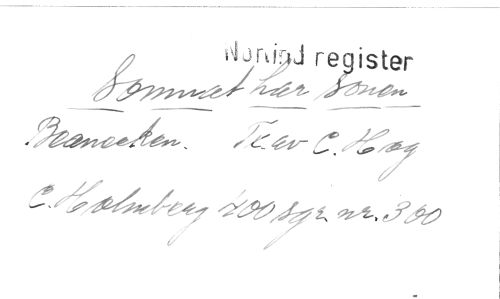 Nonind register
Sommet har sonen
Beanocken. Tr. av C. Hag
C. Holmberg 700 sgr. nr. 360